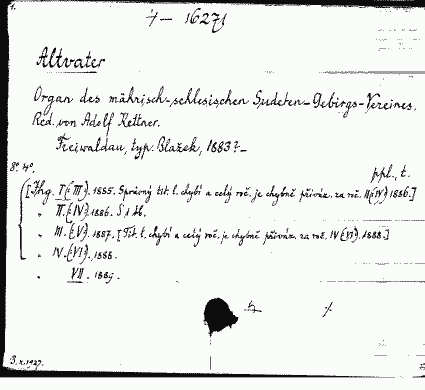 16271
Altvater
Organ des mährisch-schlesischen Sudeten-Gebirgs-Vereines.
Red. von Adolf Kettner.
Freiwaldau, typ. Blažek, 1883?-
8°. 4°. ppl., t.
[Jhg. I (III). 1885. Správný tit. l. chybí a celý roč. je chybně přiváz. za roč. II (IV) 1886.]
" II. (IV). 1886.
" III. (V). 1887. [Tit. l. chybí a celý roč. je chybně přiváz. za roč. IV (VI) 1888.]
" IV. (VI). 1888.
" VII. 1889.
3.X.1927.